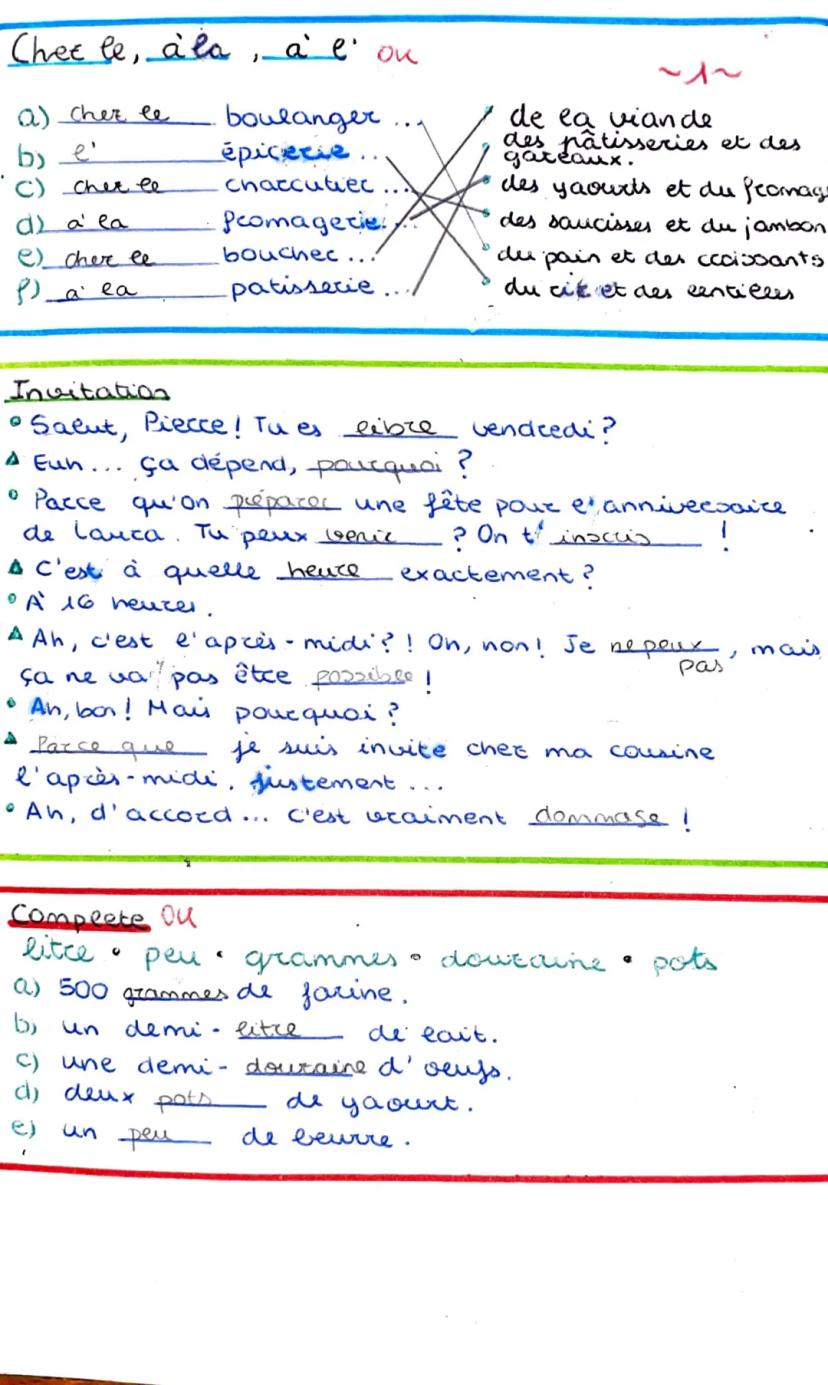 Chez le, à la, à l' ou
~1~
a) chez le boulanger ... de la viande
b) l' épicerie ... des pâtisseries et des gateaux.
c) chez le charcutier ... des yaourts et du fromag
d) à la fromagerie ... des saucisses et du jambon
e) chez le boucher ... du pain et des croissants
f) à la patisserie ... du riz et des lentilles
Invitation
Salut, Pierre! Tu es libre vendredi?
Euh... ça dépend, pourquoi?
Parce qu'on préparer une fête pour l'anniversaire
de Laura. Tu peux venir ? On t' inscris !
C'est à quelle heure exactement?
À 16 heures.
Ah, c'est l'après-midi?! Oh, non! Je ne peux pas, mais
ça ne va pas être possible!
Ah, bon! Mais pourquoi?
Parce que je suis invite chez ma cousine
l'après-midi, justement...
Ah, d'accord... c'est vraiment dommage!
Complete ou
litre • peu • grammes • douzaine • pots
a) 500 grammes de farine.
b) un demi-litre de lait.
c) une demi-douzaine d'oeufs.
d) deux pots de yaourt.
e) un peu de beurre.